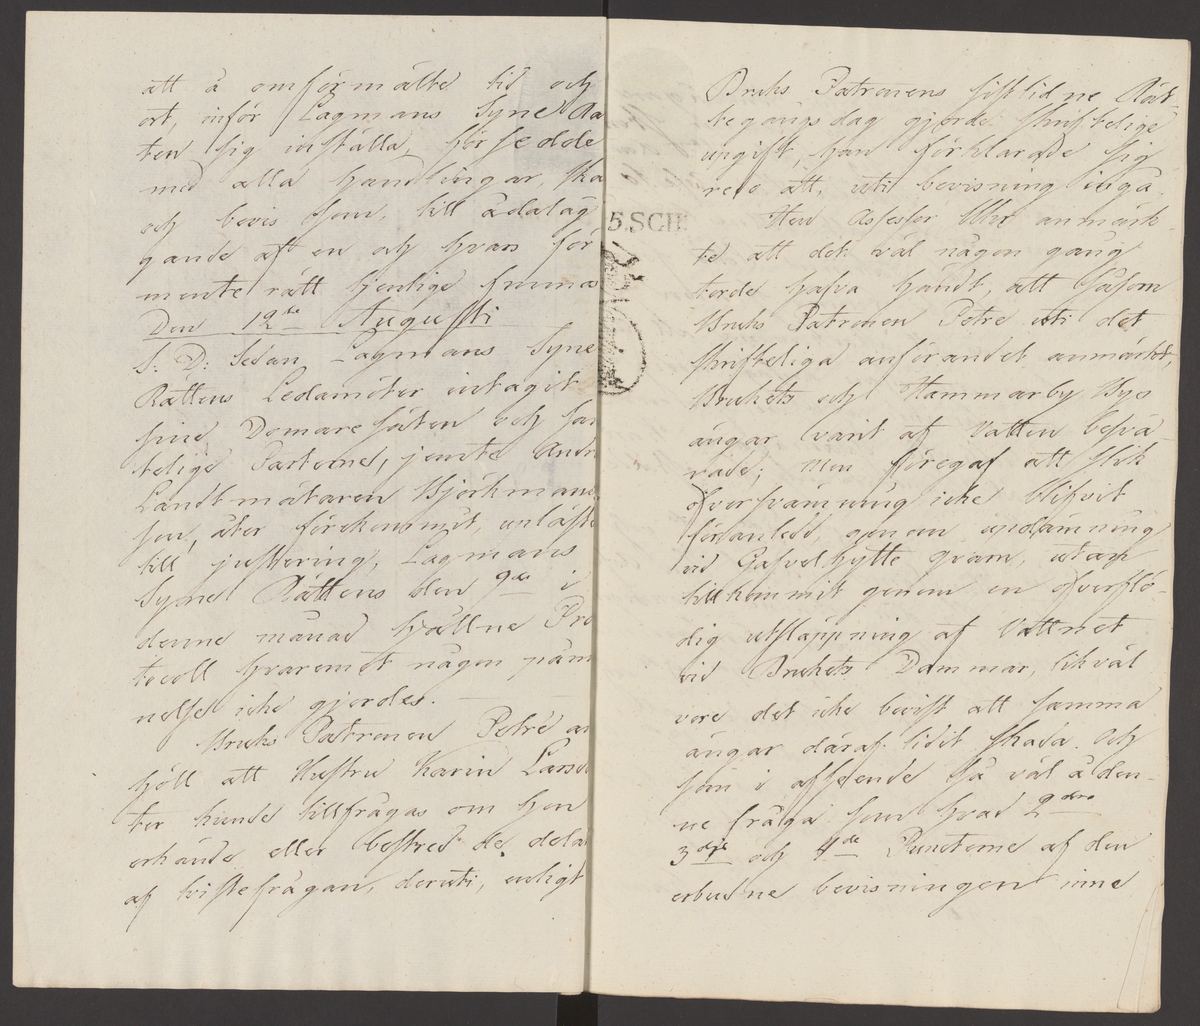 att å omförmälte tid och
ort, inför Lagmans Syne Rä
ten sig inställa, försedde
med alla handlingar, skä
och bevis som, till ådalag
gande af en och hvars för
mente rätt tjenlige finnas
Den 12te Augusti
S: D: Sedan Lagmans Syne
Rättens Ledamöter intagit
sine Domare säten och sam
telige Parterne, jemte Andre
Landtmätaren Björkman
son, åter förekommit, upläste
till justering, Lagmans
Syne Rättens den 9de i
denne månad hållne Pro
tocoll hvaremot någon påmin
nelse icke gjordes.
Bruks Patronen Petré an
höll att Hustru Karin Larsdot
ter kunde tillfrågas om hon
erkände eller bestred de delar
af tvistefrågan, deruti, enligt
Bruks Patronens sistlidne Rät-
tegångsdag gjorde skriftelige
upgift, han förklarade sig
redo att, uti bevisning ingå.
Herr Assessor Uhr anmärk
te att det väl någon gång
torde hafva händt, att såsom
Bruks Patronen Petre uti det
skrifteliga anförandet anmärkt,
Brukets och Hammarby Bys
ängar varit af Vatten besvä
rade; Men föregaf att slik
öfversvämning icke blifvit
föranledd, genom updämning
vid Gafvelhytte qvarn, utan
tillkommit genom en öfverflö-
dig utsläppning af Vattnet
vid Brukets Dammar, likväl
vore det icke bevist att samma
ängar däraf lidit skada. Och
som i afseende så väl å den-
ne fråga som hvad 2dra
3dje och 4de Puncterne af den
erbudne bevisningen inne
5.SCH: